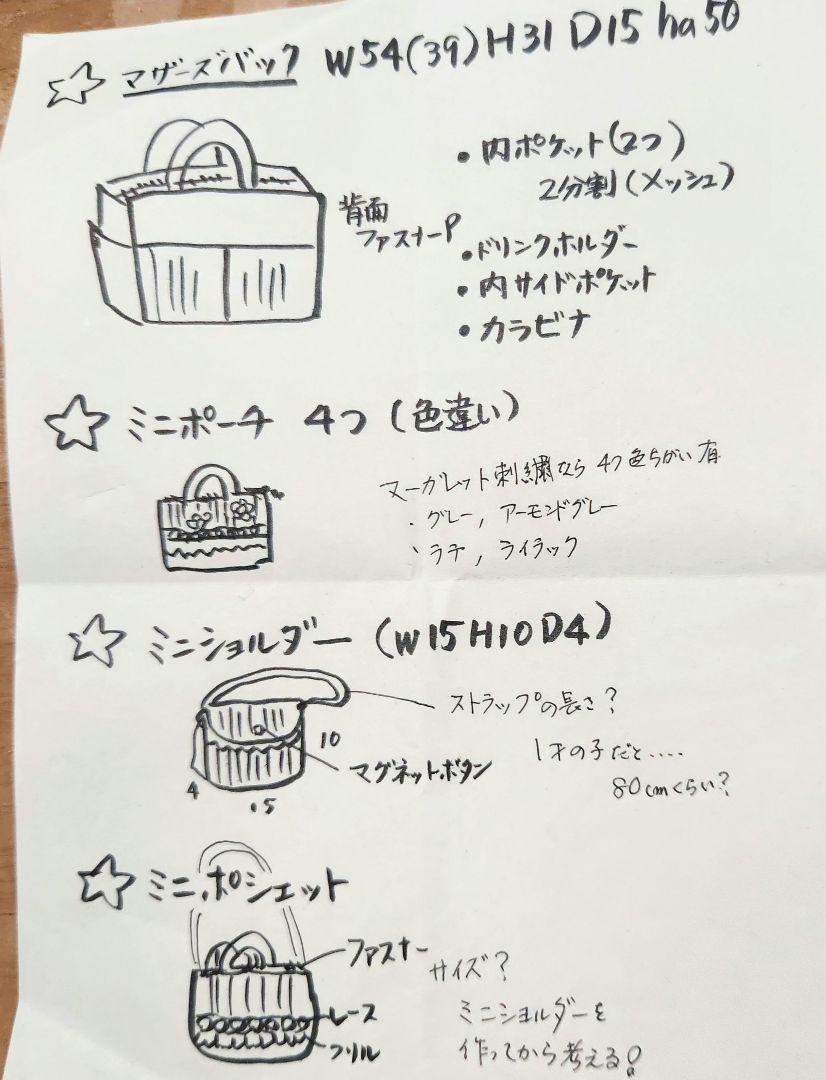 ☆ マザーズバック W54(39)H31 D15 ha50
・内ポケット(2つ)
2分割(メッシュ)
背面
ファスナーP
・ドリンクホルダー
・内サイドポケット
・カラビナ
☆ ミニポーチ 4つ(色違い)
マーガレット刺繍なら 4つ色ちがい有
・グレー, アーモンドグレー
・ラテ, ライラック
☆ ミニショルダー(W15H10D4)
ストラップの長さ?
1才の子だと.....
80cmくらい?
10
マグネットボタン
4
15
☆ ミニポシェット
ファスナー
サイズ?
レース
ミニショルダーを
フリル
作ってから考える!